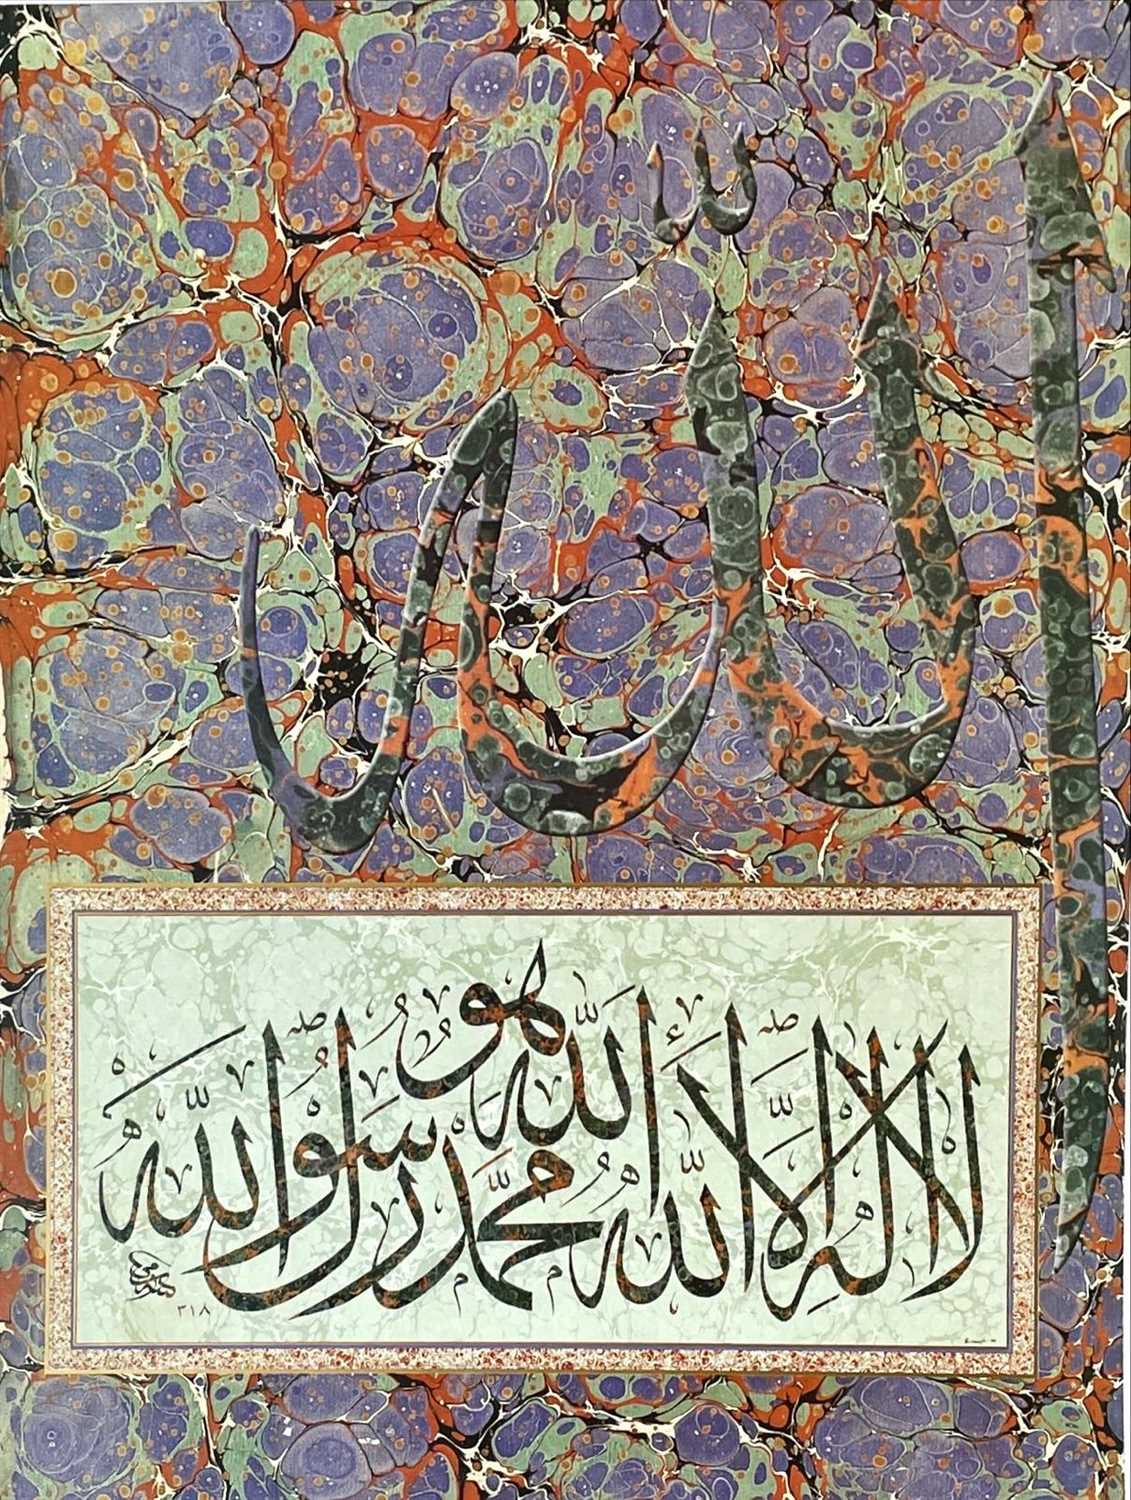 الله
هو
الله
لا اله الا الله
محمد رسول الله
٣١٨